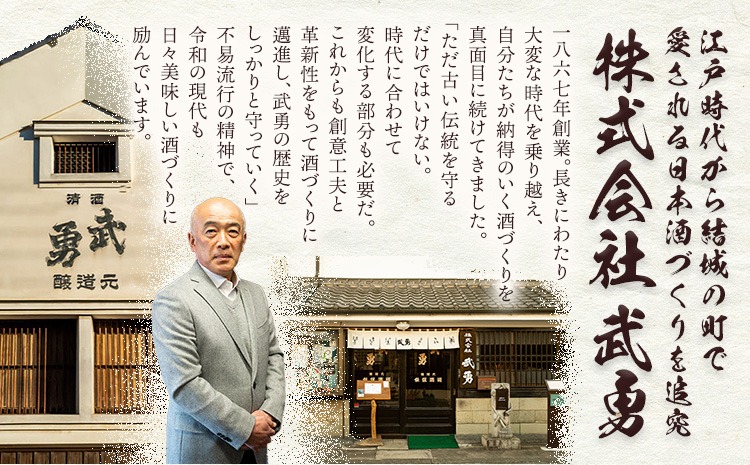 江戸時代から結城の町で
愛される日本酒づくりを追究
株式会社 武勇
一八六七年創業。長きにわたり
大変な時代を乗り越え、
自分たちが納得のいく酒づくりを
真面目に続けてきました。
「ただ古い伝統を守る
だけではいけない。
時代に合わせて
変化する部分も必要だ。
これからも創意工夫と
革新性をもって酒づくりに
邁進し、武勇の歴史を
しっかりと守っていく」
不易流行の精神で、
令和の現代も
日々美味しい酒づくりに
励んでいます。
清酒
武勇
醸造元
株式会社
武勇